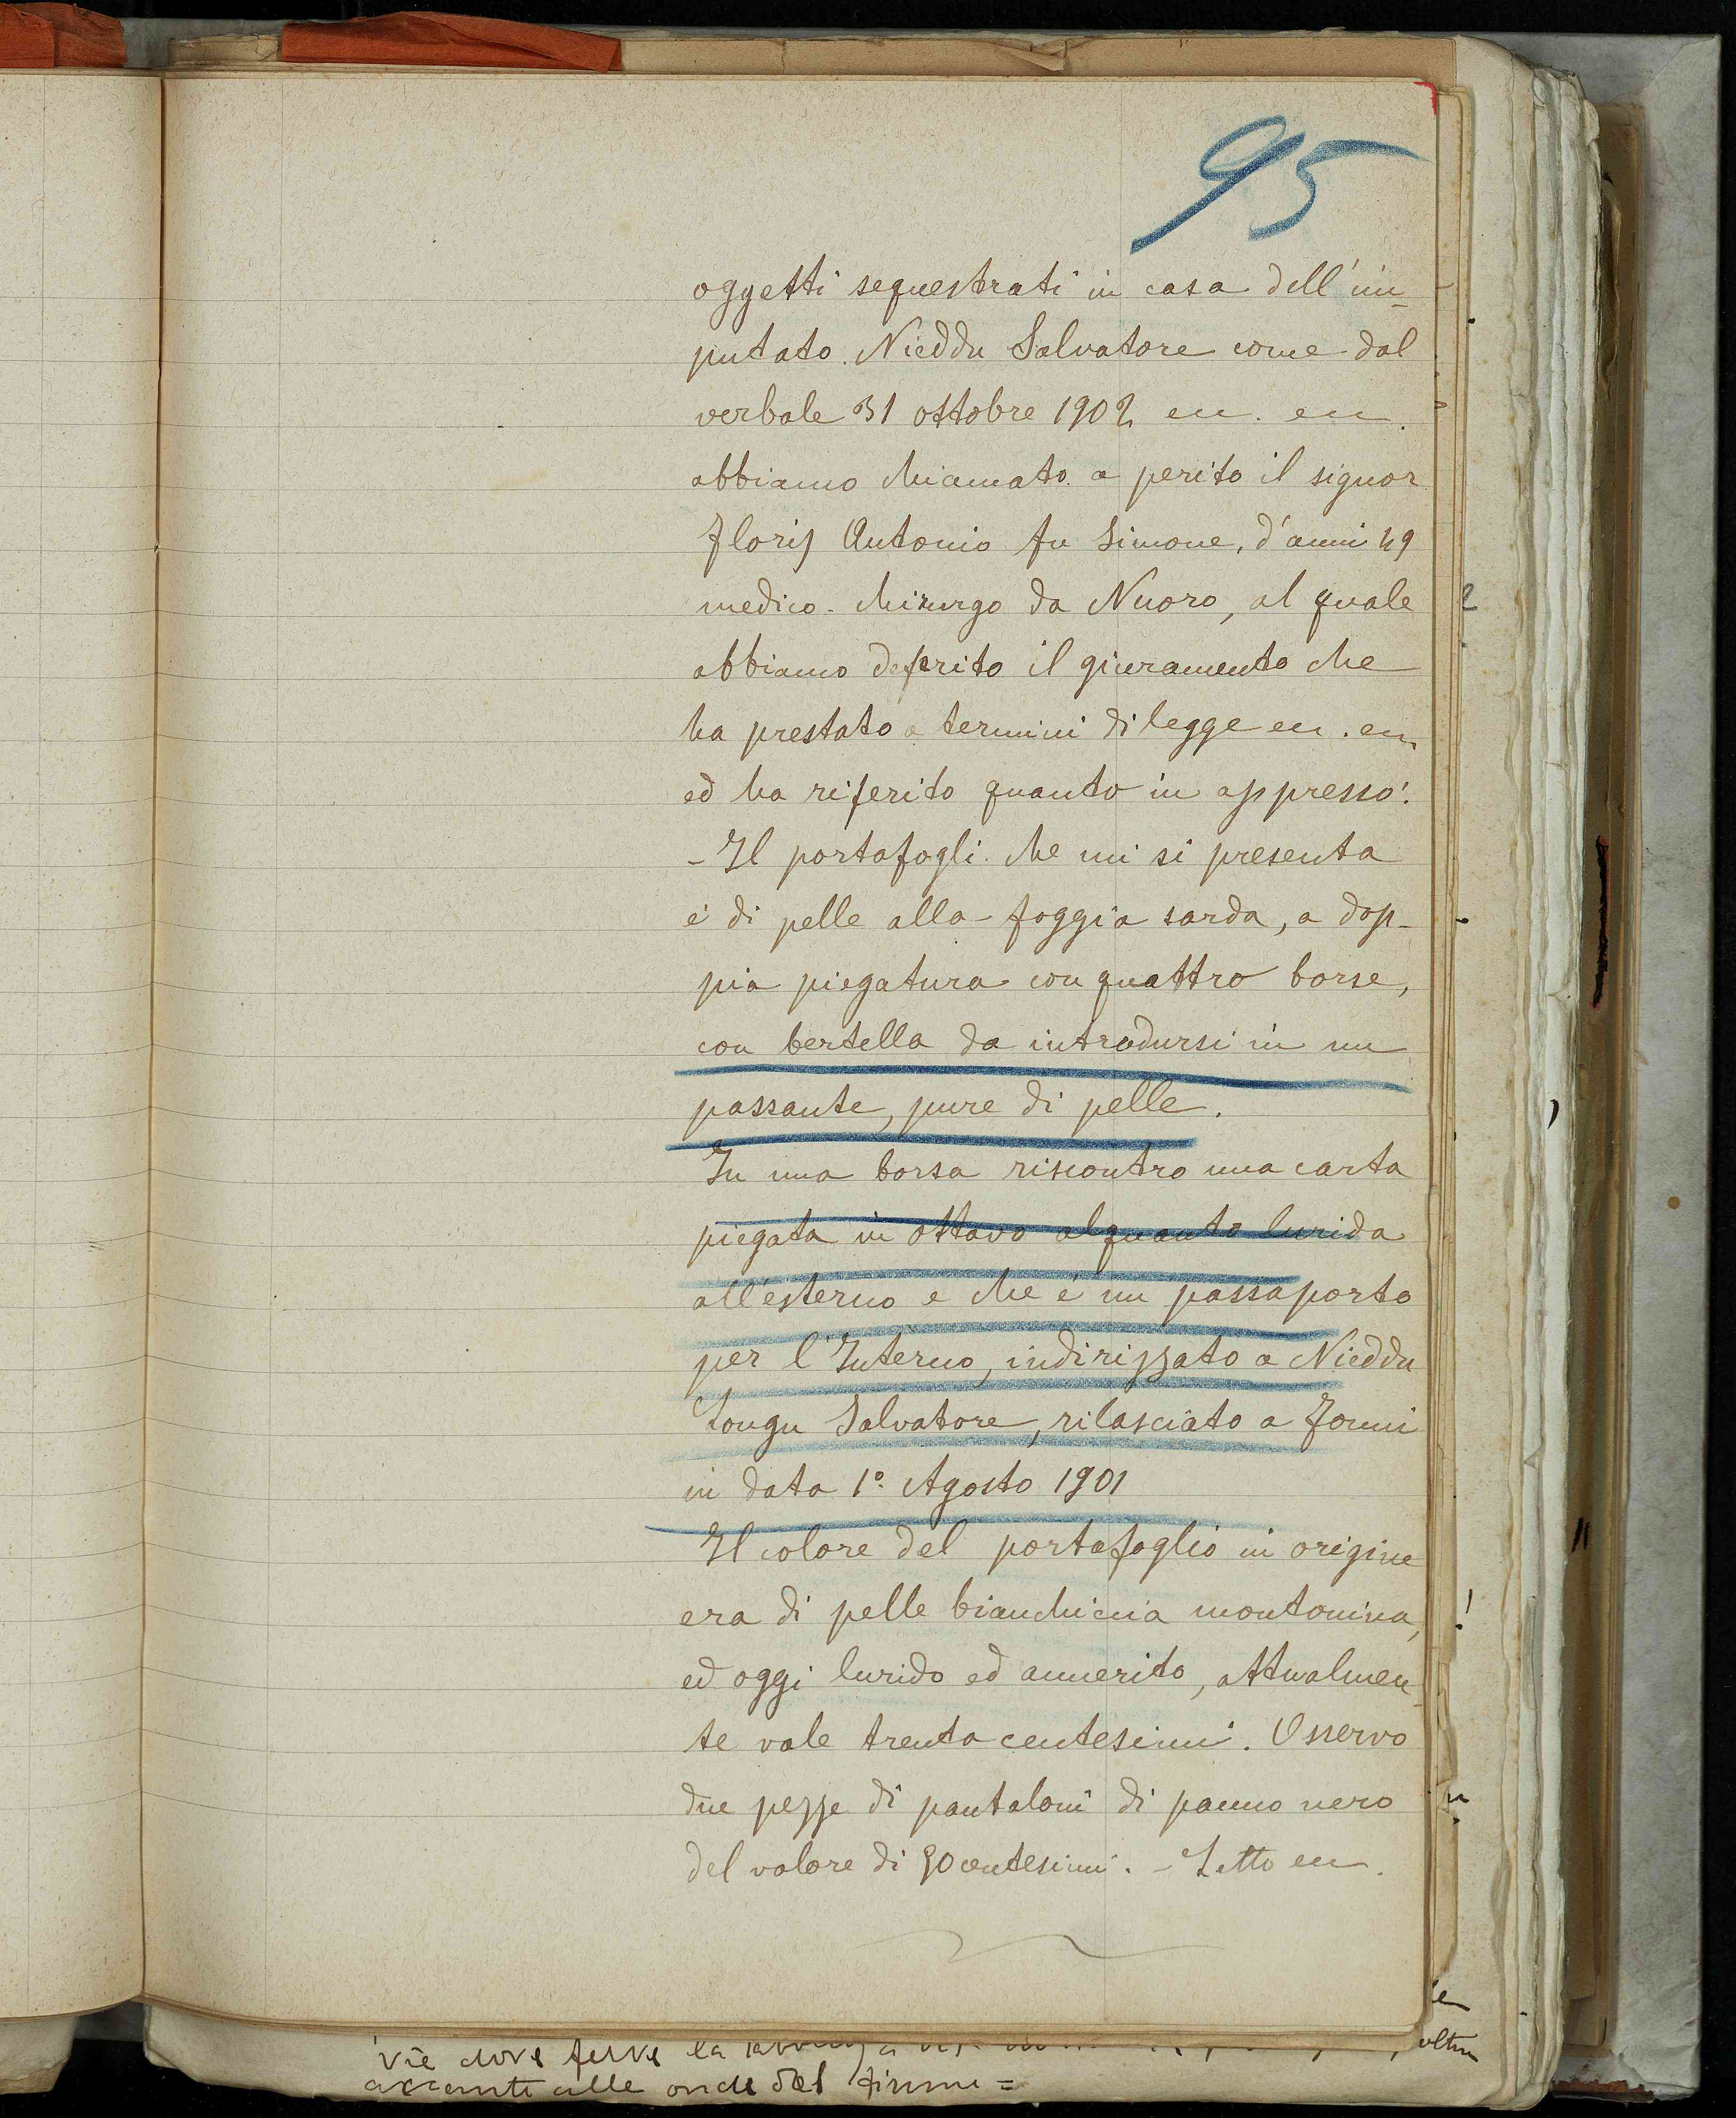 95
oggetti sequestrati in casa dell'im-
putato Nieddu Salvatore come dal
verbale 31 ottobre 1902 ecc. ecc.
abbiamo chiamato a perito il signor
Floris Antonio fu Simone, d'anni 49
medico-chirurgo da Nuoro, al quale
abbiamo deferito il giuramento che
ha prestato a termini di legge ecc. ecc.
ed ha riferito quanto in appresso:
- Il portafogli che mi si presenta
è di pelle alla foggia sarda, a dop-
pia piegatura con quattro borse,
con bertella da introdursi in un
passante, pure di pelle.
In una borsa riscontro una carta
piegata in ottavo alquanto lurida
all'esterno e che è un passaporto
per l'Interno, indirizzato a Nieddu
Songu Salvatore, rilasciato a Fonni
in data 1º Agosto 1901
Il colore del portafoglio in origine
era di pelle bianchiccia montonina,
ed oggi lurido ed annerito, attualmen-
te vale trenta centesimi. Osservo
due pezze di pantaloni di panno nero
del valore di 90 centesimi. - Letto ecc.
oltre
alle onde del fiume =